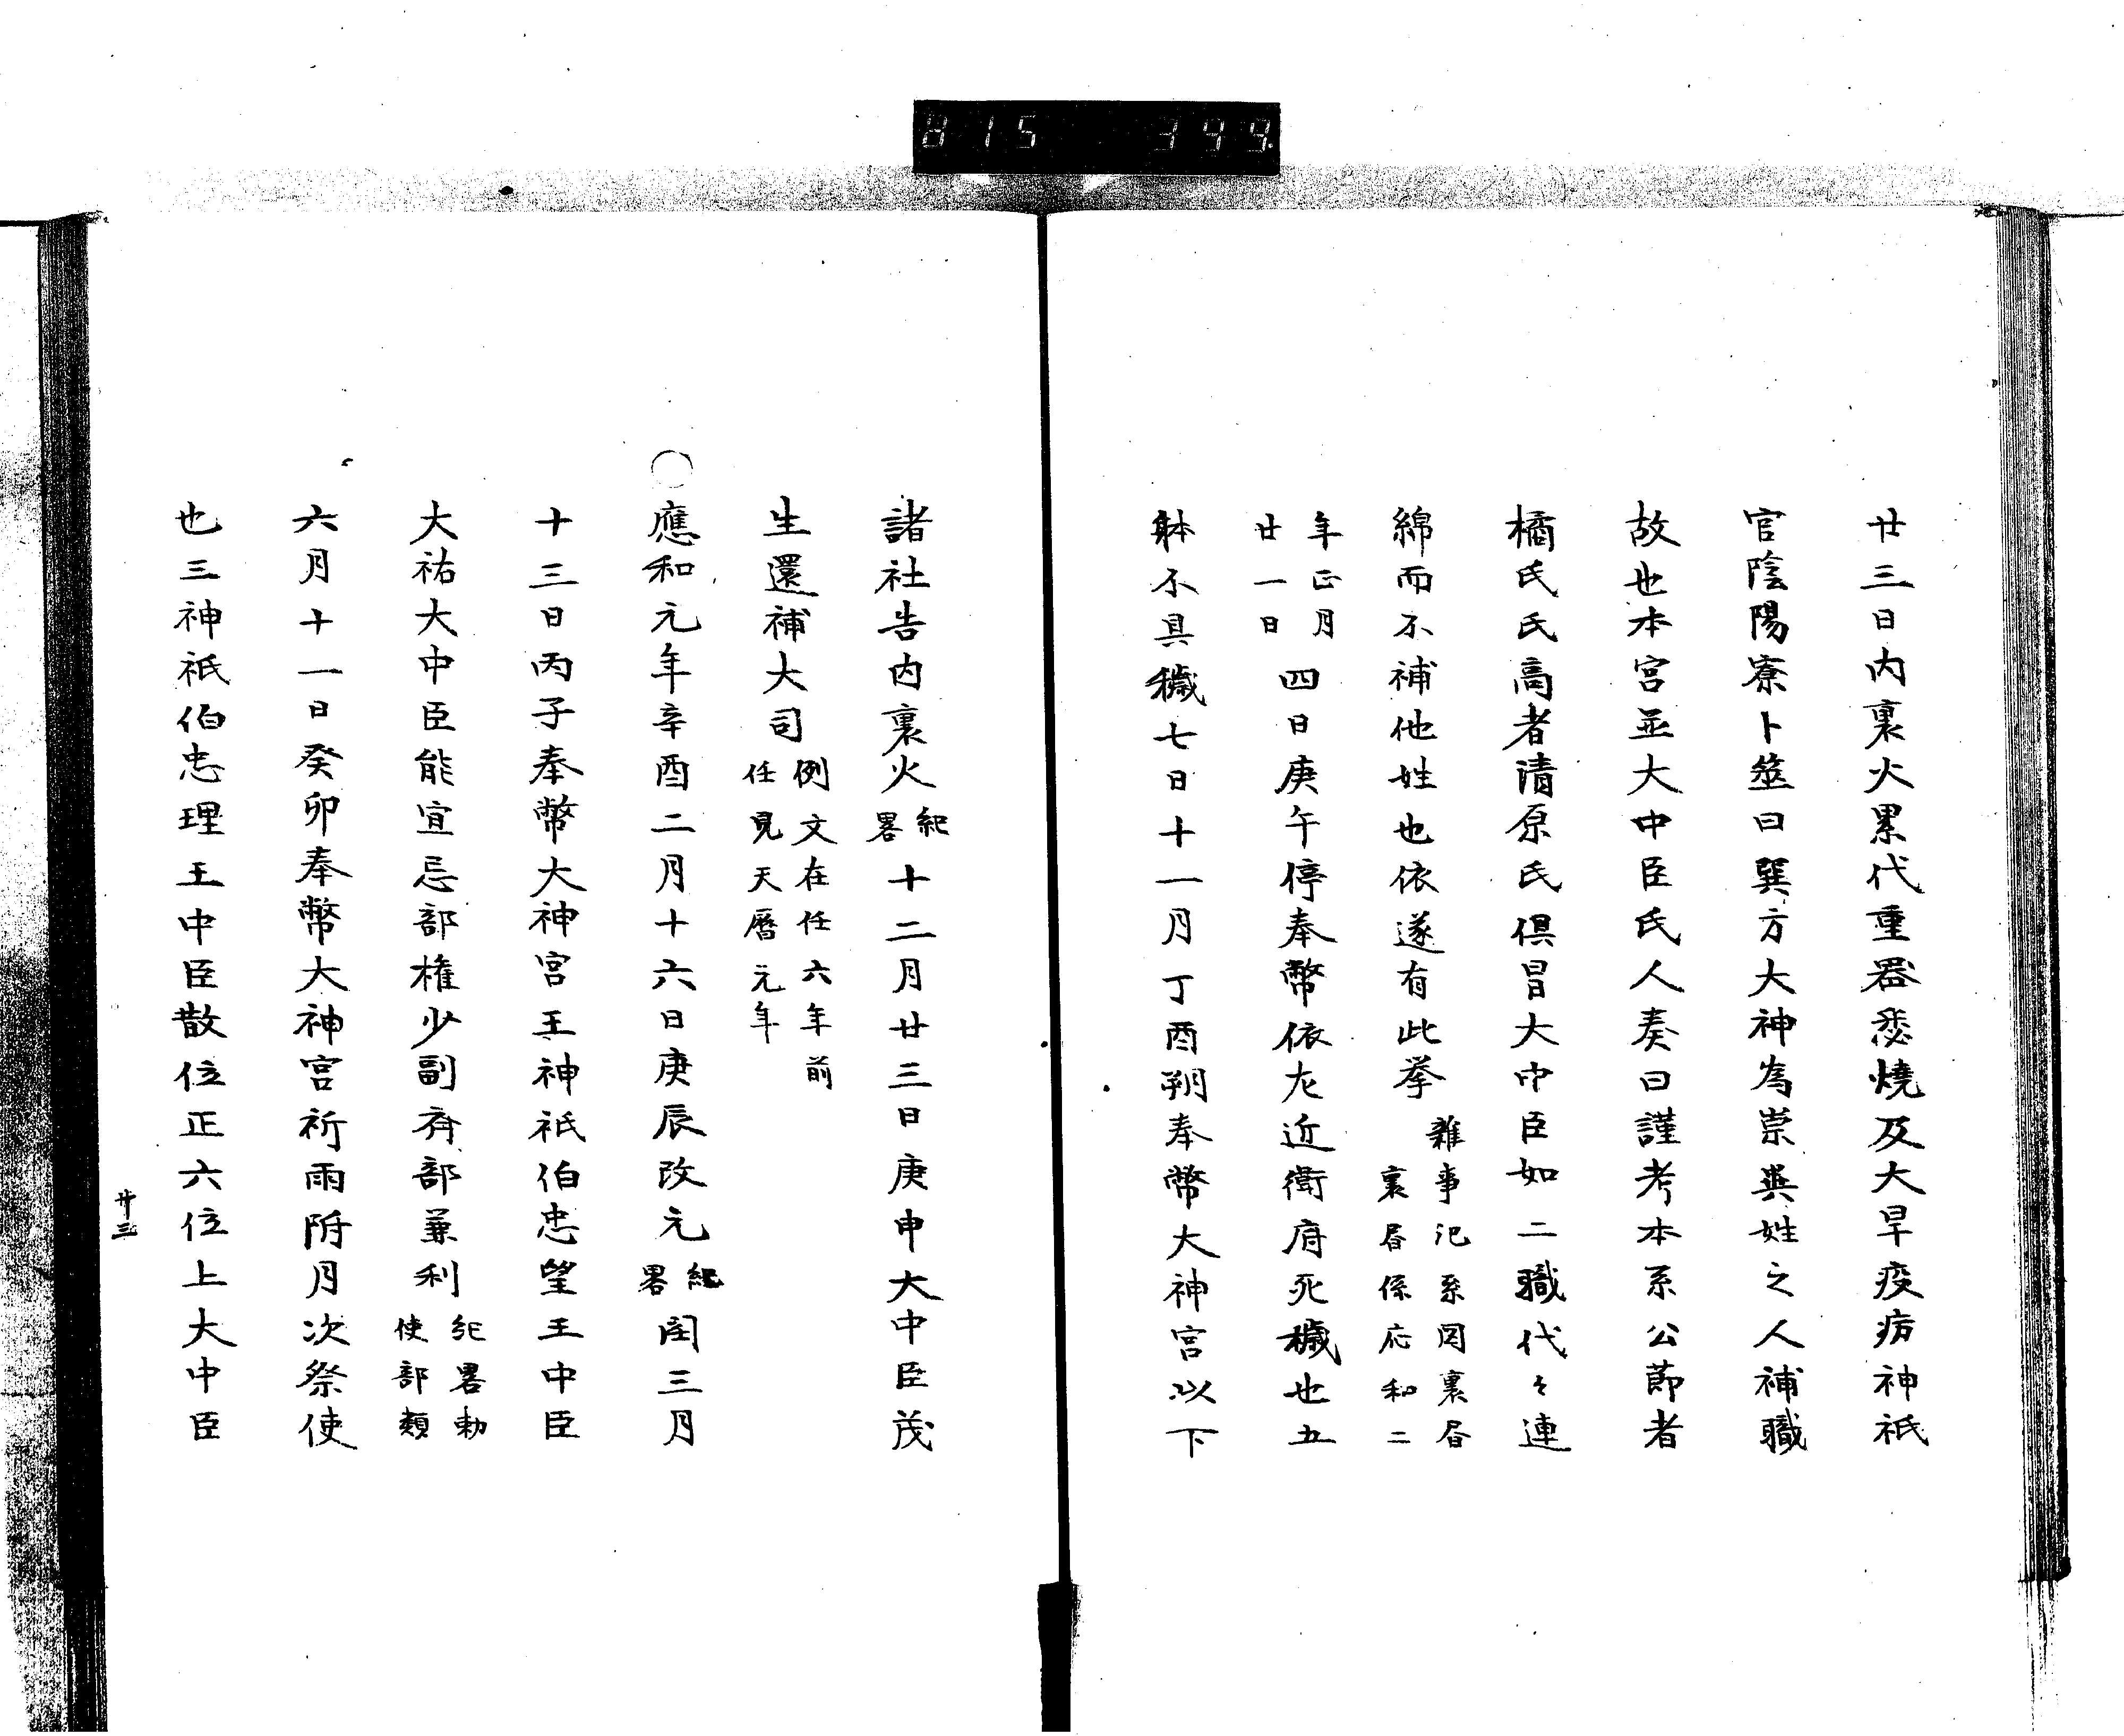 815 399
廿三日内裏火累代重器悉燒及大旱疫疠神祇
官陰陽寮卜筮曰巽方大神為崇異姓之人補職
故也本宮並大中臣氏人奏曰謹考本系公節者
橘氏氏高者清原氏俱冒大中臣如二職代々連
綿而不補他姓也依遂有此挙
雜事記系図裏昬
裏昬係応和二
年正月
廿一日
四日庚午停奉幣依左近衛府死穢也五
躰不具穢七日十一月丁酉朔奉幣大神宮以下
諸社告内裏火
紀
畧
十二月廿三日庚申大中臣茂
生還補大司
例文在任六年前
任見天曆元年
〇應和元年辛酉二月十六日庚辰改元
紀
畧
閏三月
十三日丙子奉幣大神宮王神祇伯忠望王中臣
大祐大中臣能宣忌部権少副斉部兼利
紀畧勅
使部類
六月十一日癸卯奉幣大神宮祈雨附月次祭使
也三神祇伯忠理王中臣散位正六位上大中臣
廿三